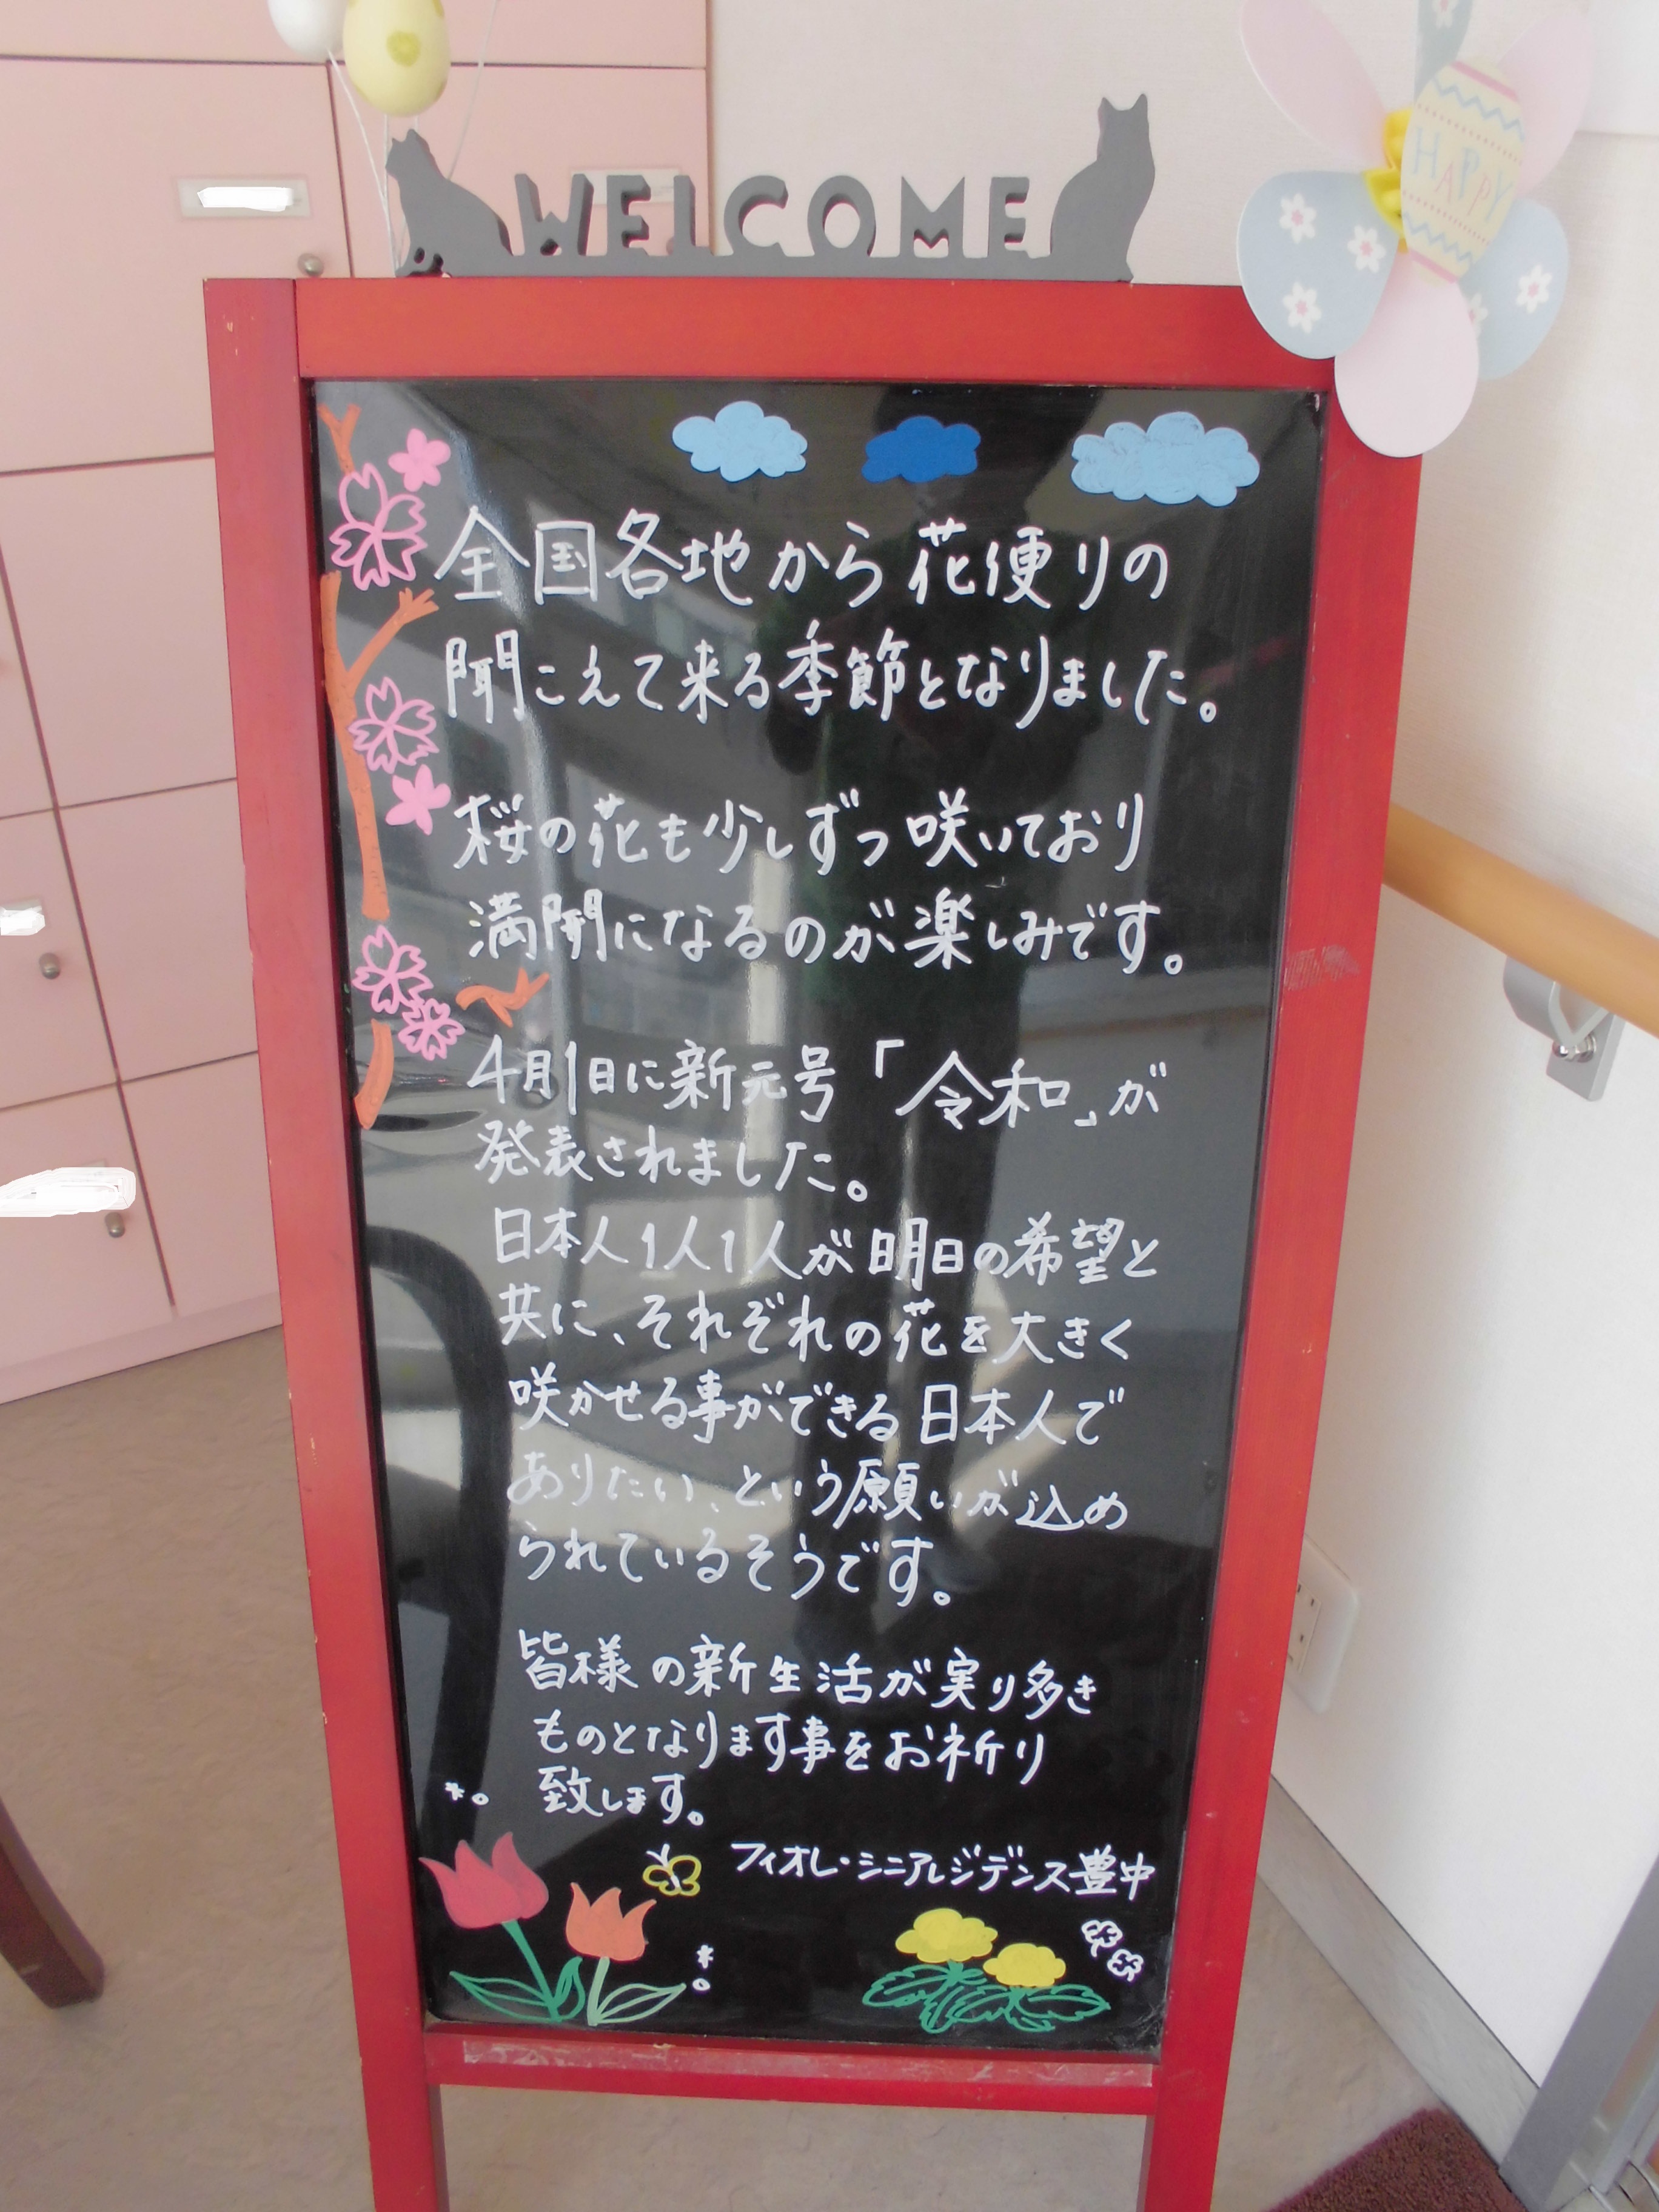 WELCOME
HAPPY
全国各地から花便りの
聞こえて来る季節となりました。
桜の花も少しずつ咲いており
満開になるのが楽しみです。
4月1日に新元号「令和」が
発表されました。
日本人1人1人が明日の希望と
共に、それぞれの花を大きく
咲かせる事ができる日本人で
ありたい、という願いが込め
られているそうです。
皆様の新生活が実り多き
ものとなります事をお祈り
致します。
フィオレ・シニアレジデンス豊中